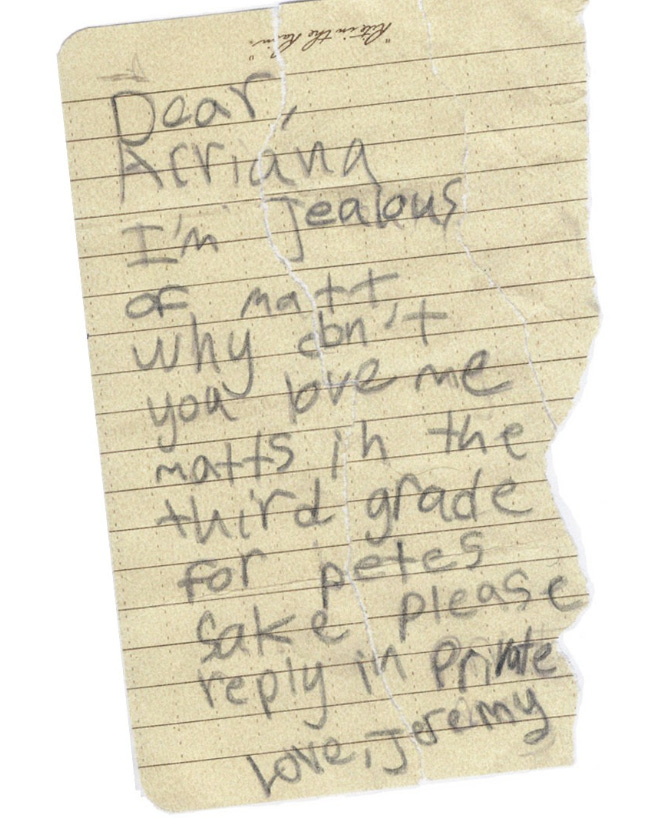 "Rite in the Rain"
Dear,
Arriana
I'm jealous
of matt
why don't
you love me
matts in the
third grade
for petes
sake please
reply in private
Love, Jeremy